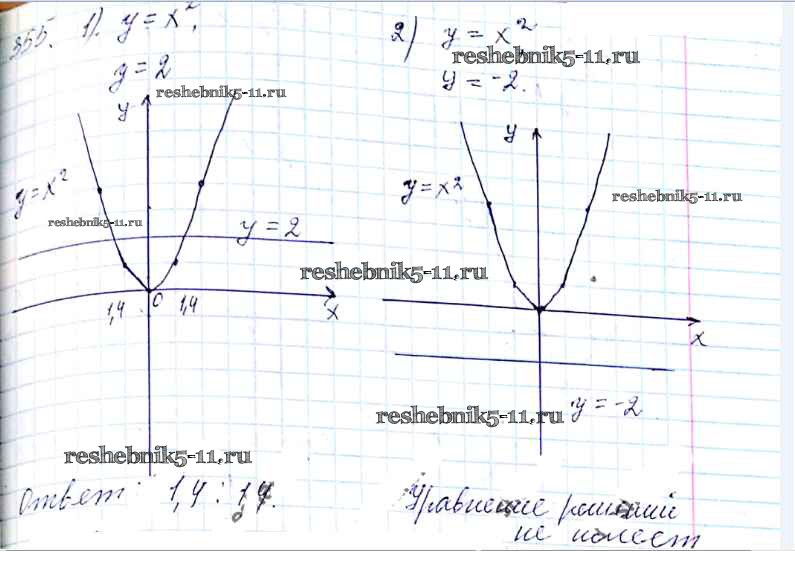 855. 1). y = x²,
y = 2
reshebnik5-11.ru
y
y = x²
reshebnik5-11.ru
y = 2
reshebnik5-11.ru
1,4 0 1,4 x
reshebnik5-11.ru
Ответ: 1,4;
2) y = x²
reshebnik5-11.ru
y = -2.
y
y = x²
reshebnik5-11.ru
x
reshebnik5-11.ru
y = -2
Уравнение решений
не имеет